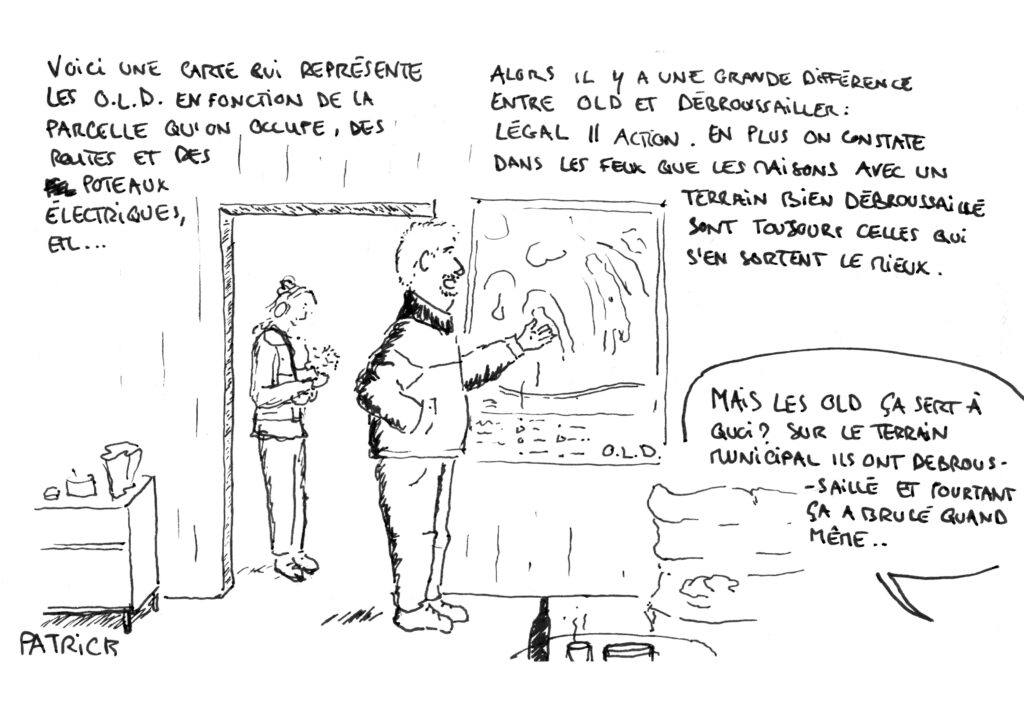 VOICI UNE CARTE QUI REPRÉSENTE
LES O.L.D. EN FONCTION DE LA
PARCELLE QU'ON OCCUPE, DES
ROUTES ET DES
POTEAUX
ÉLECTRIQUES,
ETC...
ALORS IL Y A UNE GRANDE DIFFÉRENCE
ENTRE OLD ET DÉBROUSSAILLER:
LÉGAL || ACTION. EN PLUS ON CONSTATE
DANS LES FEUX QUE LES MAISONS AVEC UN
TERRAIN BIEN DÉBROUSSAILLÉ
SONT TOUJOURS CELLES QUI
S'EN SORTENT LE MIEUX.
MAIS LES OLD ÇA SERT À
QUOI? SUR LE TERRAIN
MUNICIPAL ILS ONT DEBROUS-
-SAILLÉ ET POURTANT
ÇA A BRULÉ QUAND
MÊME..
O.L.D.
PATRICK